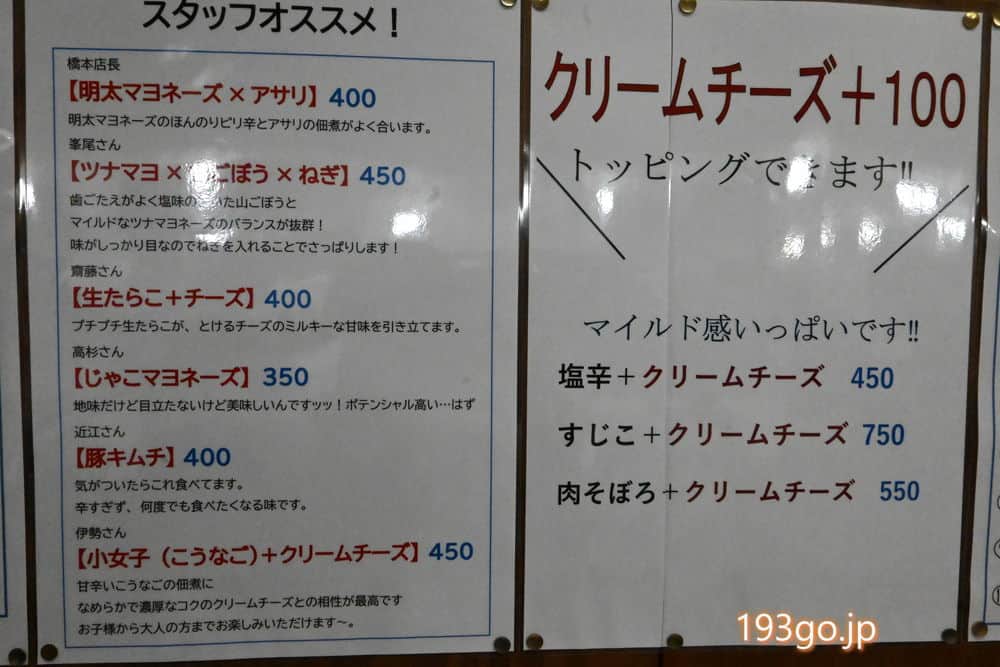 スタッフオススメ！
橋本店長
【明太マヨネーズ×アサリ】 400
明太マヨネーズのほんのりピリ辛とアサリの佃煮がよく合います。
峯尾さん
【ツナマヨ×ごぼう×ねぎ】 450
歯ごたえがよく塩味のいた山ごぼうと
マイルドなツナマヨネーズのバランスが抜群！
味がしっかり目なのでねぎを入れることでさっぱりします！
齋藤さん
【生たらこ＋チーズ】 400
プチプチ生たらこが、とけるチーズのミルキーな甘味を引き立てます。
高杉さん
【じゃこマヨネーズ】 350
地味だけど目立たないけど美味しいんですッッ！ポテンシャル高い…はず
近江さん
【豚キムチ】 400
気がついたらこれ食べてます。
辛すぎず、何度でも食べたくなる味です。
伊勢さん
【小女子（こうなご）＋クリームチーズ】 450
甘辛いこうなごの佃煮に
なめらかで濃厚なコクのクリームチーズとの相性が最高です
お子様から大人の方までお楽しみいただけます～。
クリームチーズ＋100
トッピングできます!!
マイルド感いっぱいです!!
塩辛＋クリームチーズ 450
すじこ＋クリームチーズ 750
肉そぼろ＋クリームチーズ 550
193go.jp